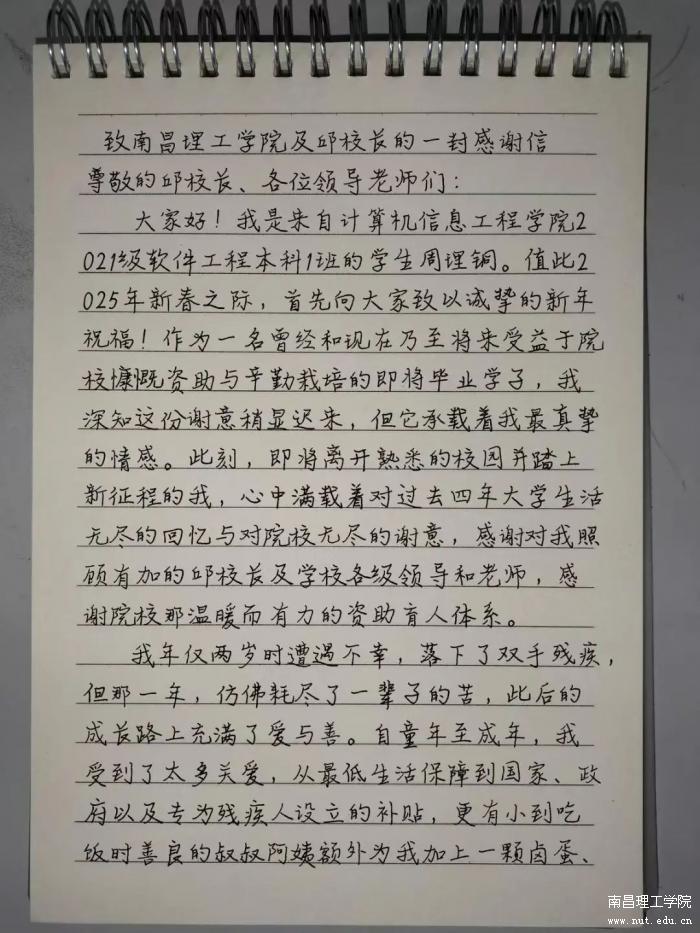 致南昌理工学院及邱校长的一封感谢信
尊敬的邱校长、各位领导老师们：
大家好！我是来自计算机信息工程学院2
021级软件工程本科1班的学生周理铜。值此2
025年新春之际，首先向大家致以诚挚的新年
祝福！作为一名曾经和现在乃至将来受益于院
校慷慨资助与辛勤栽培的即将毕业学子，我
深知这份谢意稍显迟来，但它承载着我最真挚
的情感。此刻，即将离开熟悉的校园并踏上
新征程的我，心中满载着对过去四年大学生活
无尽的回忆与对院校无尽的谢意，感谢对我照
顾有加的邱校长及学校各级领导和老师，感
谢院校那温暖而有力的资助育人体系。
我年仅两岁时遭遇不幸，落下了双手残疾，
但那一年，仿佛耗尽了一辈子的苦，此后的
成长路上充满了爱与善。自童年至成年，我
受到了太多关爱，从最低生活保障到国家、政
府以及专为残疾人设立的补贴，更有小到吃
饭时善良的叔叔阿姨额外为我加上一颗卤蛋、
南昌理工学院
www.nut.edu.cn